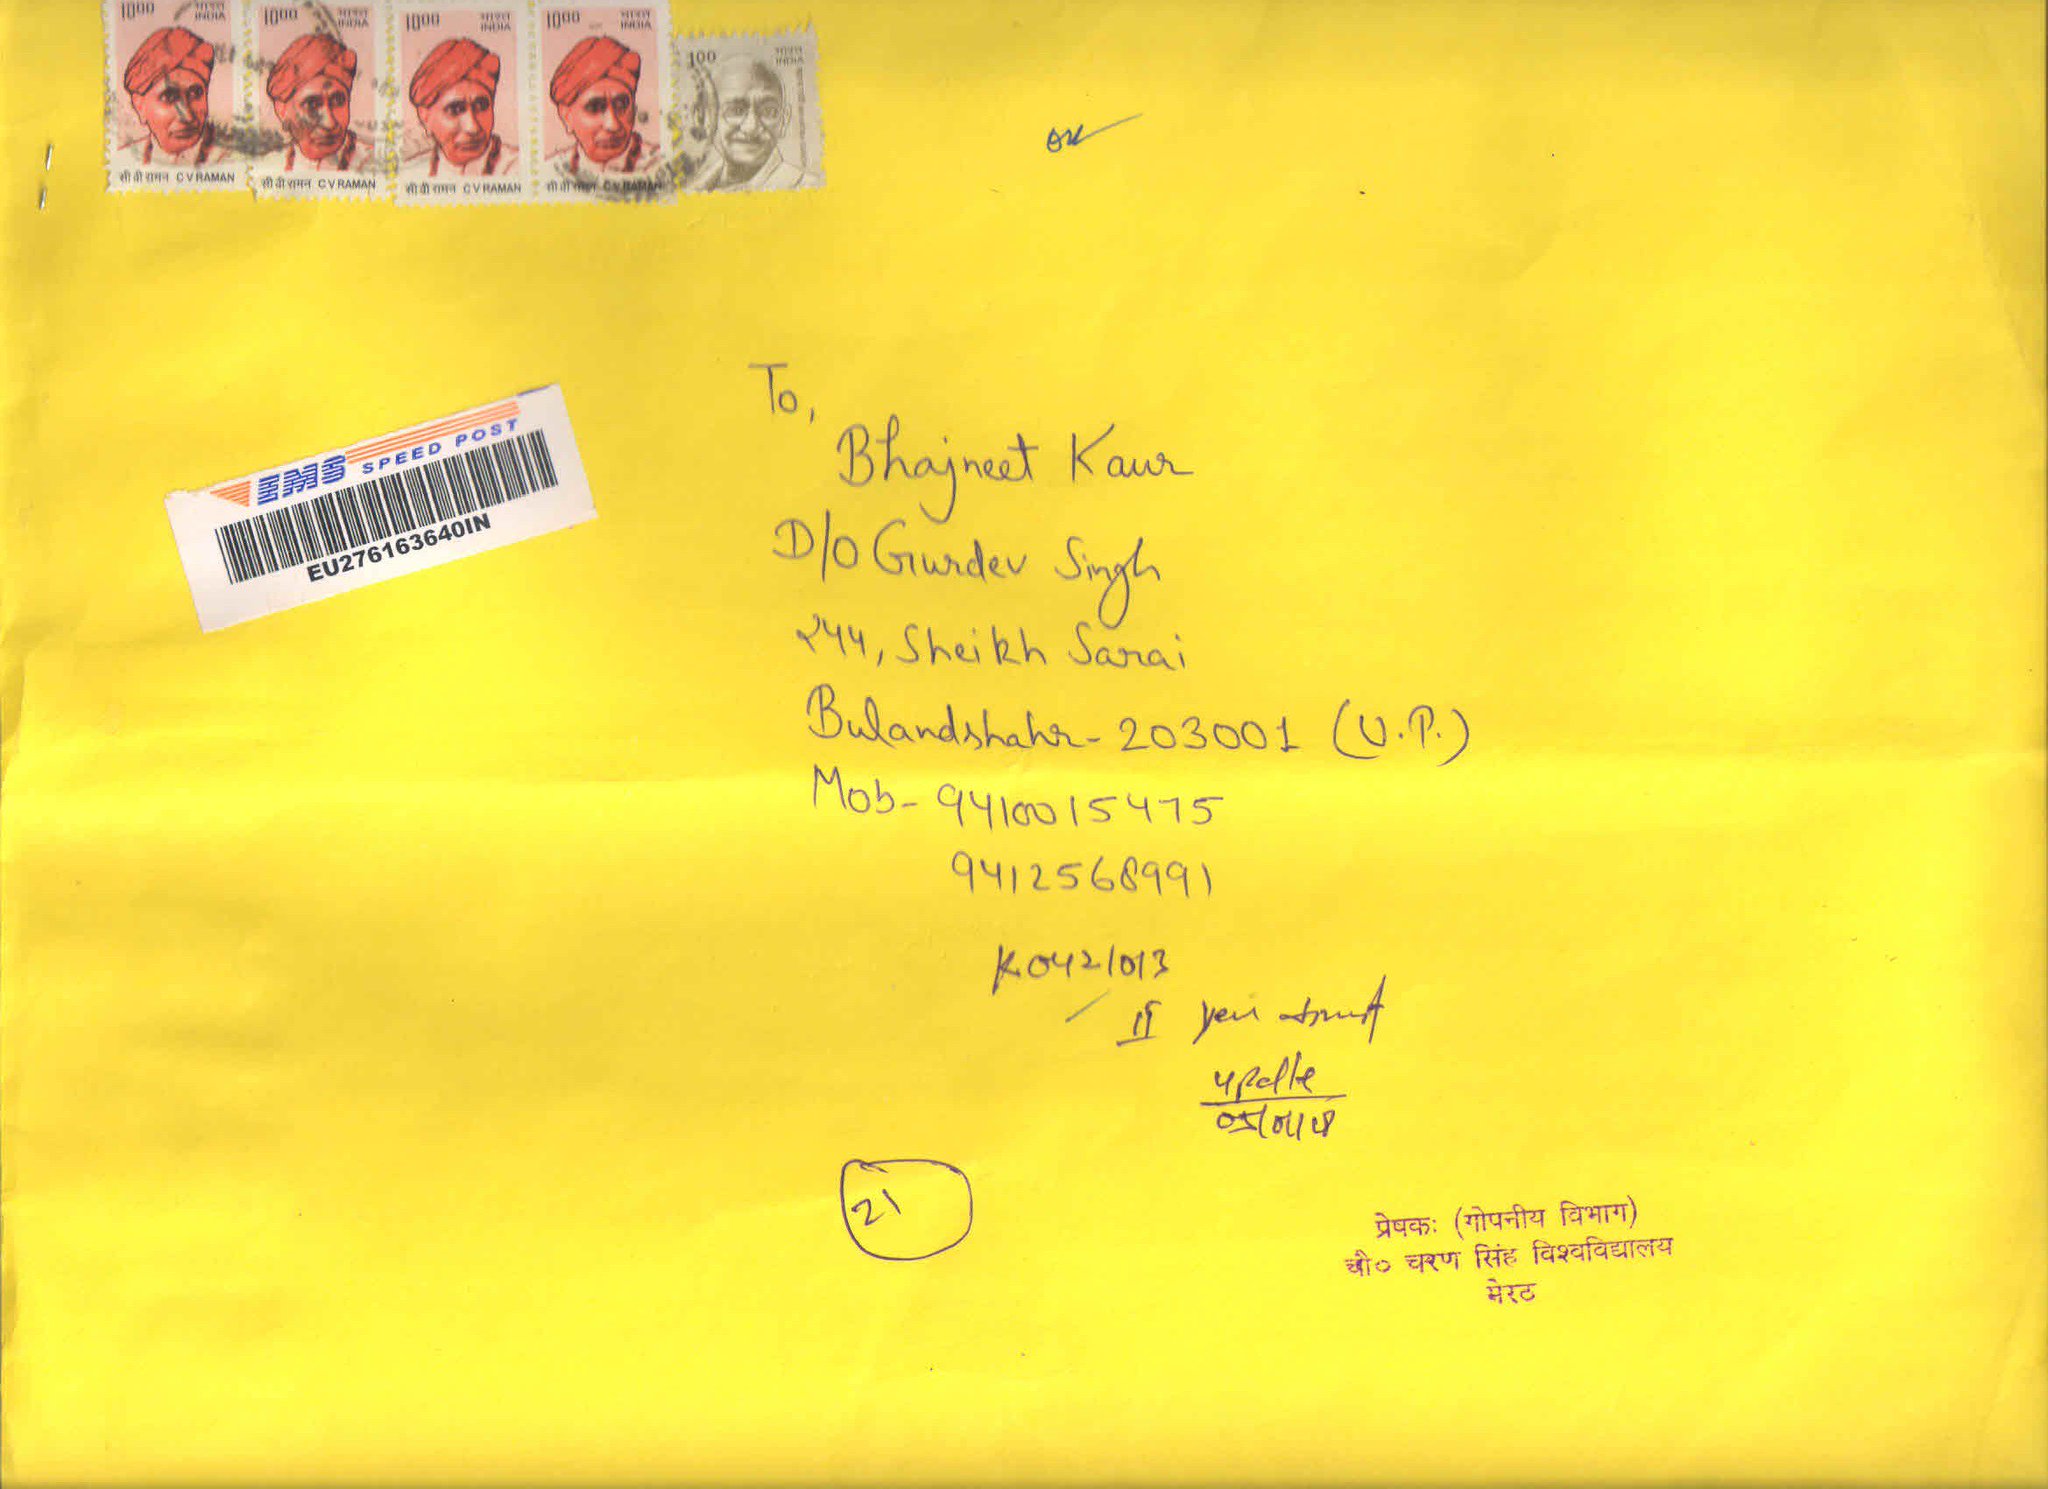 1000 भारत INDIA
सी वी रामन C V RAMAN
1000 भारत INDIA
सी वी रामन C V RAMAN
1000 भारत INDIA
सी वी रामन C V RAMAN
1000 भारत INDIA
सी वी रामन C V RAMAN
100 भारत INDIA
EMS SPEED POST
EU276163640IN
To,
Bhajneet Kaur
D/O Gurdev Singh
244, Sheikh Sarai
Bulandshahr - 203001 (U.P.)
Mob - 9410015475
9412568991
K042/013
II
21
प्रेषकः (गोपनीय विभाग)
चौ० चरण सिंह विश्वविद्यालय
मेरठ